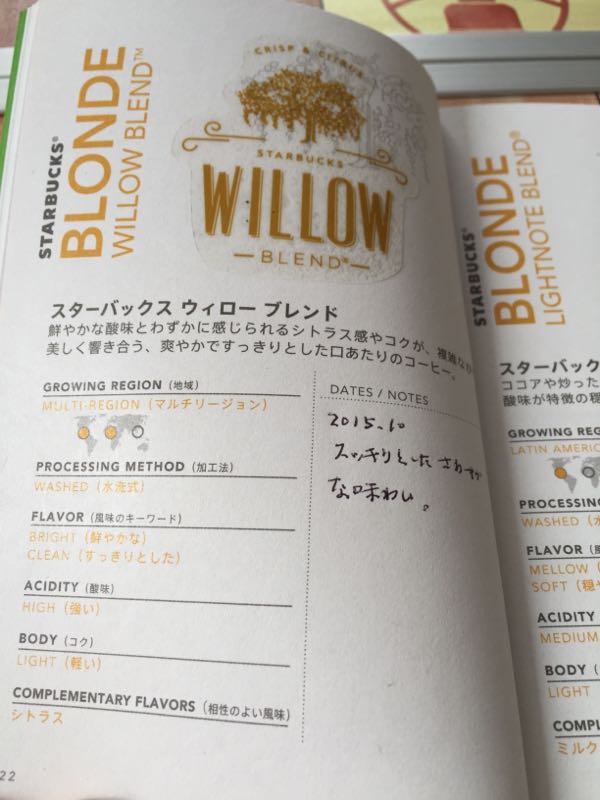 STARBUCKS®
BLONDE
WILLOW BLEND™
CRISP & CITRUS
STARBUCKS
WILLOW
BLEND®
スターバックス ウィロー ブレンド
鮮やかな酸味とわずかに感じられるシトラス感やコクが、複雑な
美しく響き合う、爽やかですっきりとした口あたりのコーヒー。
GROWING REGION（地域）
MULTI-REGION（マルチリージョン）
PROCESSING METHOD（加工法）
WASHED（水洗式）
FLAVOR（風味のキーワード）
BRIGHT（鮮やかな）
CLEAN（すっきりとした）
ACIDITY（酸味）
HIGH（強い）
BODY（コク）
LIGHT（軽い）
COMPLEMENTARY FLAVORS（相性のよい風味）
シトラス
DATES / NOTES
2015.10
スッキリとしたさわやか
な味わい。
22
STARBUCKS®
BLONDE
LIGHTNOTE BLEND®
スターバック
ココアや炒った
酸味が特徴の穏
GROWING REG
LATIN AMERIC
PROCESSING
WASHED（水
FLAVOR（風
MELLOW（
SOFT（穏や
ACIDITY
MEDIUM
BODY（
LIGHT
COMPL
ミルク